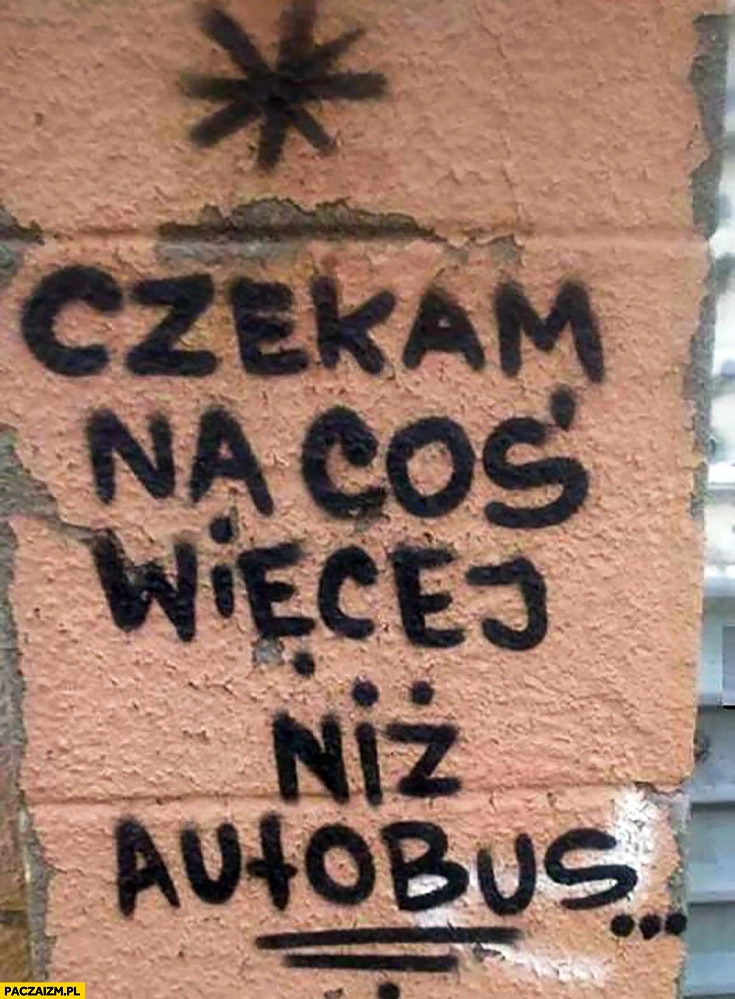 CZEKAM
NA COŚ
WIĘCEJ
NIŻ
AUTOBUS...
PACZAIZM.PL